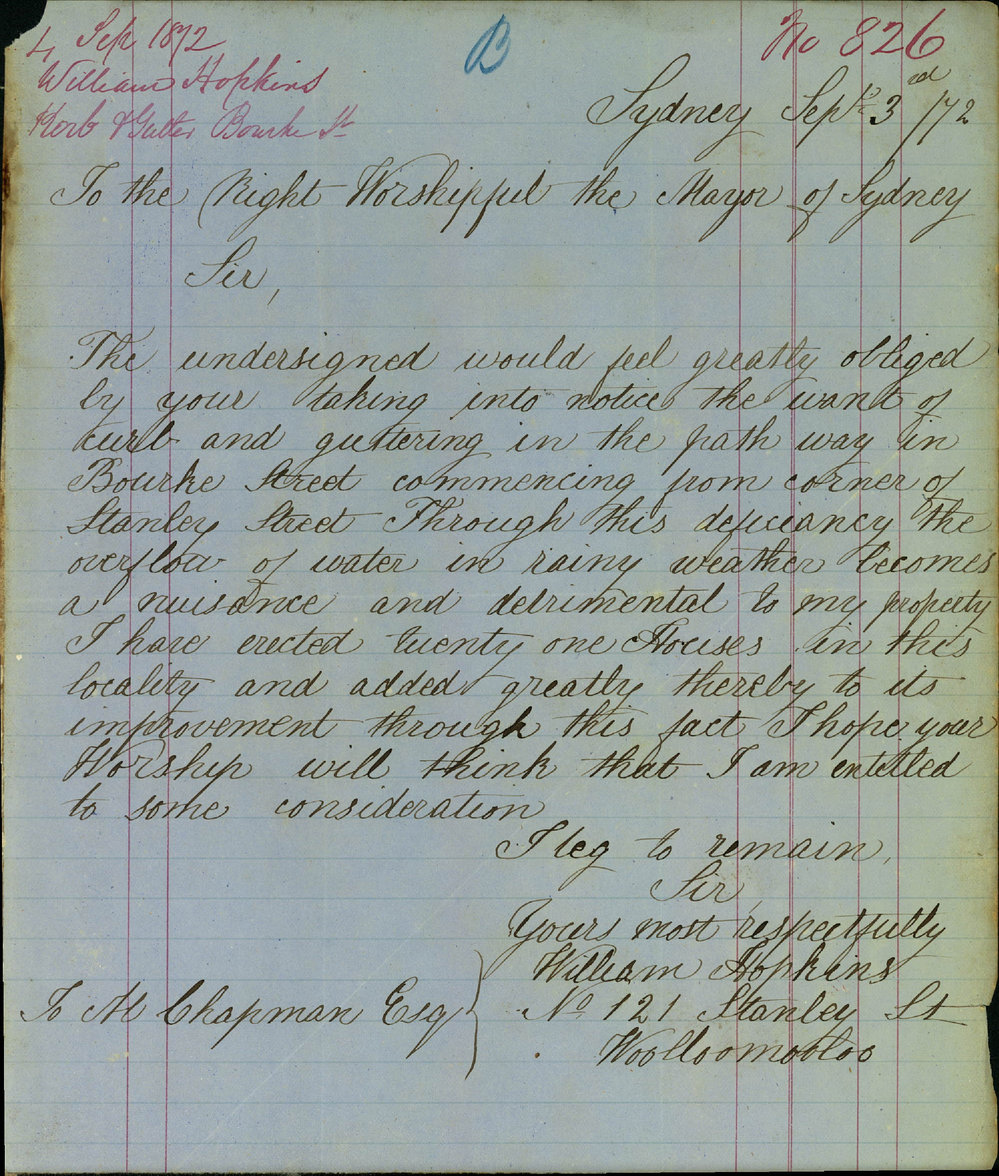 4 Sep 1872
William Hopkins
Kerb & Gutter Bourke St
B
No 826
Sydney Sept 3rd /72
To the Right Worshippful the Mayor of Sydney
Sir,
The undersigned would feel greatly obliged
by your taking into notice the want of
curb and guttering in the path way in
Bourke Street commencing from corner of
Stanley Street Through this deficiancy the
overflow of water in rainy weather becomes
a nuisance and detrimental to my property
I have erected twenty one Houses in this
locality and added greatly thereby to its
improvement through this fact I hope your
Worship will think that I am entitled
to some consideration
I beg to remain,
Sir
Yours most respectfully
William Hopkins
To M Chapman Esq
No 121 Stanley St
Woolloomooloo